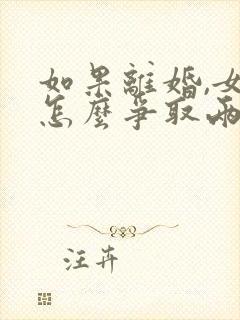 如果離婚,女
怎麼爭取兩
注卉